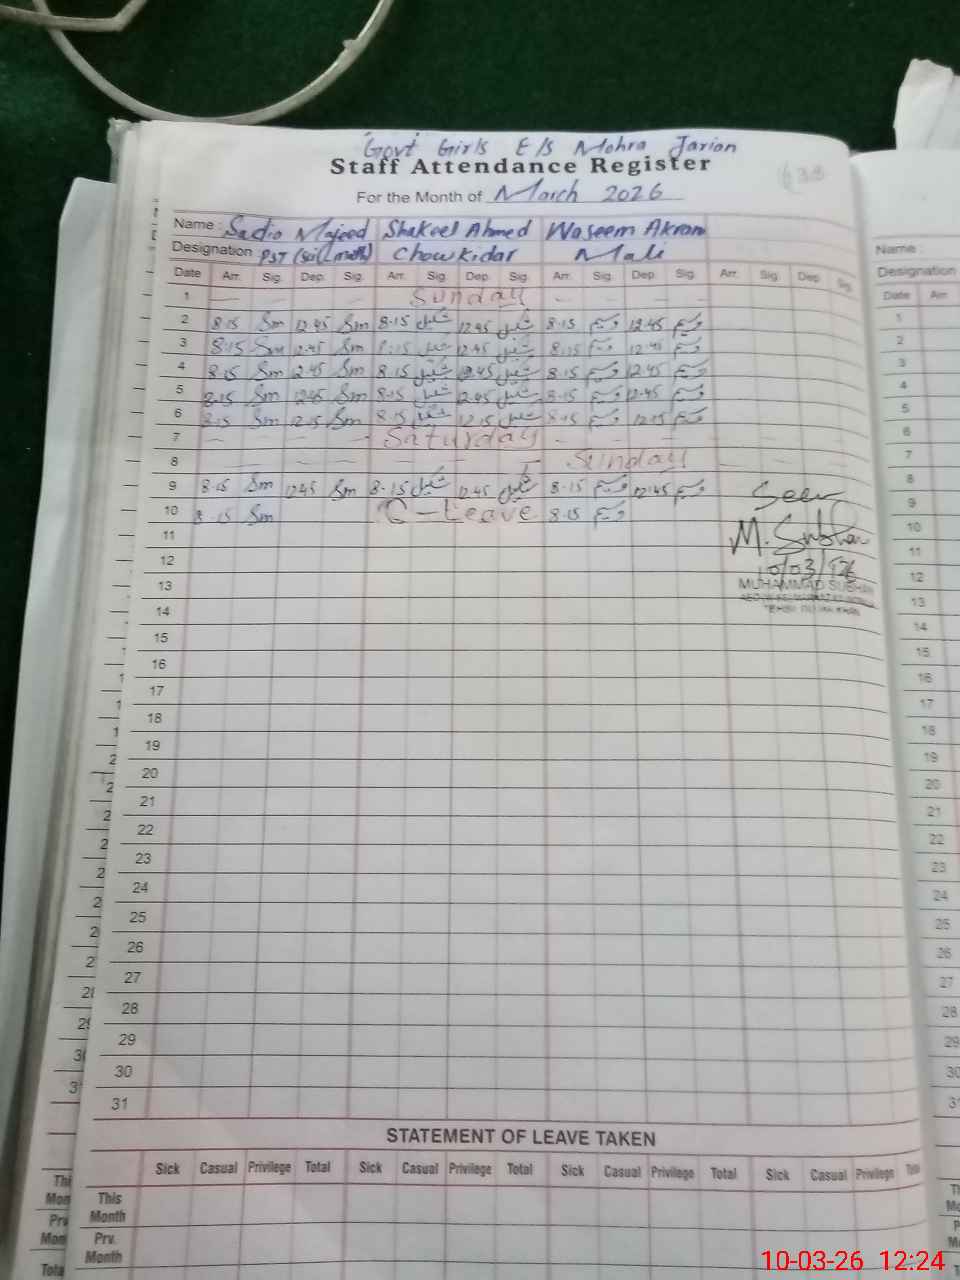 Govt Girls E/S Mohra Jarion
Staff Attendance Register
For the Month of March 2026
Name : Sadio Majeed Shakeel Ahmed Waseem Akram
Designation PST Chowkidar Mali
Date Arr. Sig. Dep. Sig. Arr. Sig. Dep. Sig. Arr. Sig. Dep. Sig. Arr. Sig. Dep. Sig.
1 Sunday
2 8.15 Sm 12.45 Sm 8.15 شکیل 12.45 شکیل 8.15 وسیم 12.45 وسیم
3 8.15 Sm 12.45 Sm 8.15 شکیل 12.45 شکیل 8.15 وسیم 12.45 وسیم
4 8.15 Sm 12.45 Sm 8.15 شکیل 12.45 شکیل 8.15 وسیم 12.45 وسیم
5 8.15 Sm 12.45 Sm 8.15 شکیل 12.45 شکیل 8.15 وسیم 12.45 وسیم
6 8.15 Sm 12.15 Sm 8.15 شکیل 12.15 شکیل 8.15 وسیم 12.15 وسیم
7 Saturday
8 Sunday
9 8.15 Sm 12.45 Sm 8.15 شکیل 12.45 شکیل 8.15 وسیم 12.45 وسیم
Seen
10 8.15 Sm C-Leave 8.15 وسیم
11
M. Subhan
12
10/03/26
13
MUHAMMAD SUBHAN
14
15
16
17
18
19
20
21
22
23
24
25
26
27
28
29
30
31
STATEMENT OF LEAVE TAKEN
Sick Casual Privilege Total Sick Casual Privilege Total Sick Casual Privilege Total Sick Casual Privilege Total
This Month
Prv. Month
Name :
Designation
Date Arr.
1
2
3
4
5
6
7
8
9
10
11
12
13
14
15
16
17
18
19
20
21
22
23
24
25
26
27
28
29
30
31
10-03-26 12:24